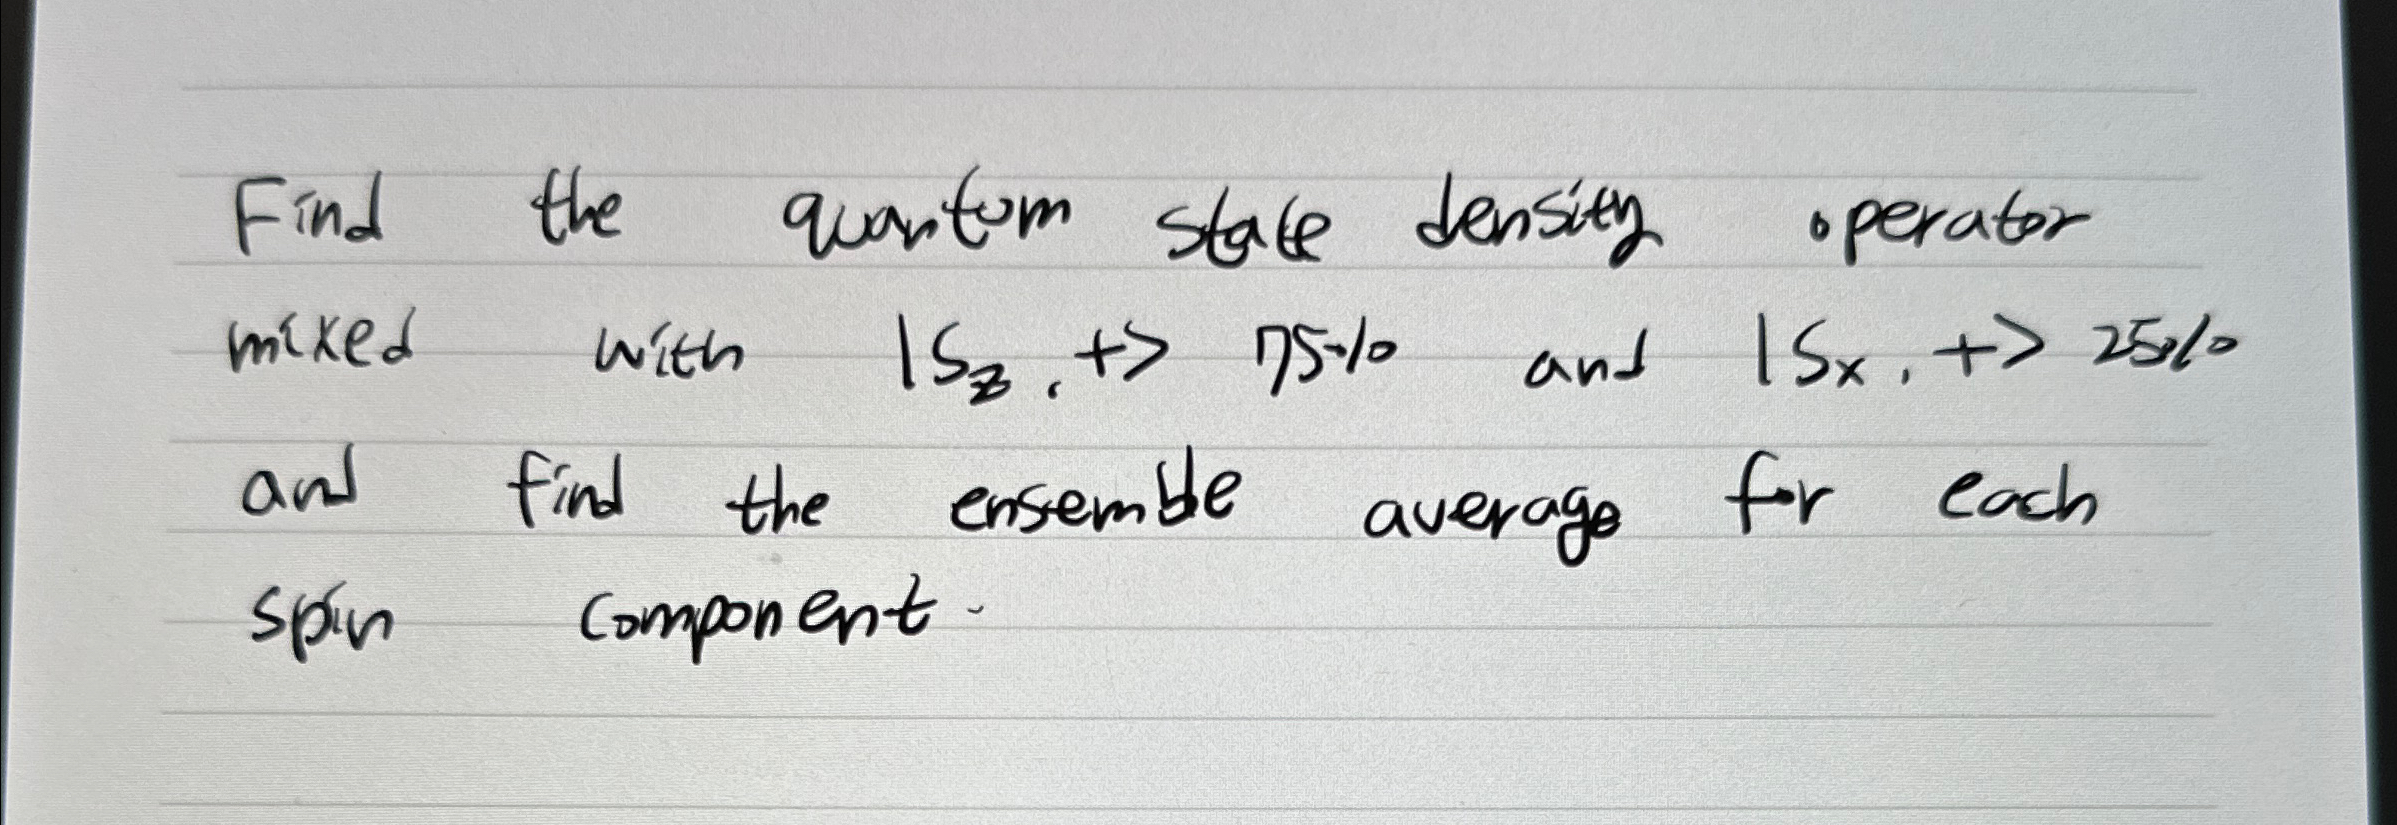 Find the quantum state density operator
mixed with |Sz, +> 75% and |Sx, +> 25%
and find the ensemble average for each
spin component.